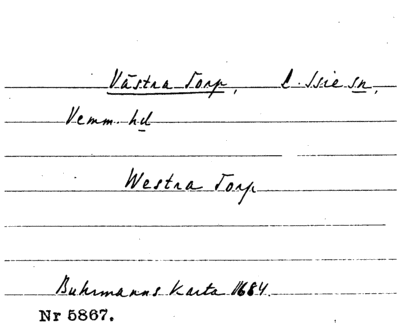 Västra Torp, L. Isie sn,
Vemm. hd
Westra Torp
Buhrmanns Karta 1684.
Nr 5867.